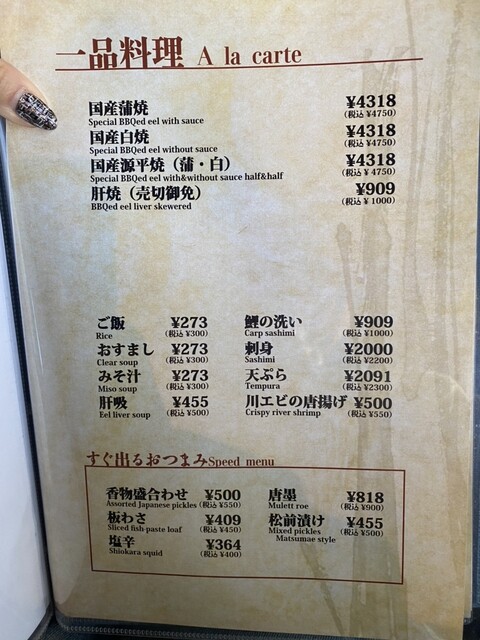 一品料理 A la carte
国産蒲焼 ¥4318
Special BBQed eel with sauce (税込 ¥4750)
国産白焼 ¥4318
Special BBQed eel without sauce (税込 ¥4750)
国産源平焼（蒲・白） ¥4318
Special BBQed eel with&without sauce half&half (税込 ¥4750)
肝焼（売切御免） ¥909
BBQed eel liver skewered (税込 ¥1000)
ご飯 ¥273
Rice (税込 ¥300)
おすまし ¥273
Clear soup (税込 ¥300)
みそ汁 ¥273
Miso soup (税込 ¥300)
肝吸 ¥455
Eel liver soup (税込 ¥500)
鯉の洗い ¥909
Carp sashimi (税込 ¥1000)
刺身 ¥2000
Sashimi (税込 ¥2200)
天ぷら ¥2091
Tempura (税込 ¥2300)
川エビの唐揚げ ¥500
Crispy river shrimp (税込 ¥550)
すぐ出るおつまみ Speed menu
香物盛合わせ ¥500
Assorted Japanese pickles (税込 ¥550)
板わさ ¥409
Sliced fish paste loaf (税込 ¥450)
塩辛 ¥364
Shiokara squid (税込 ¥400)
唐墨 ¥818
Mulett roe (税込 ¥900)
松前漬け ¥455
Mixed pickles (税込 ¥500)
Matsumae style